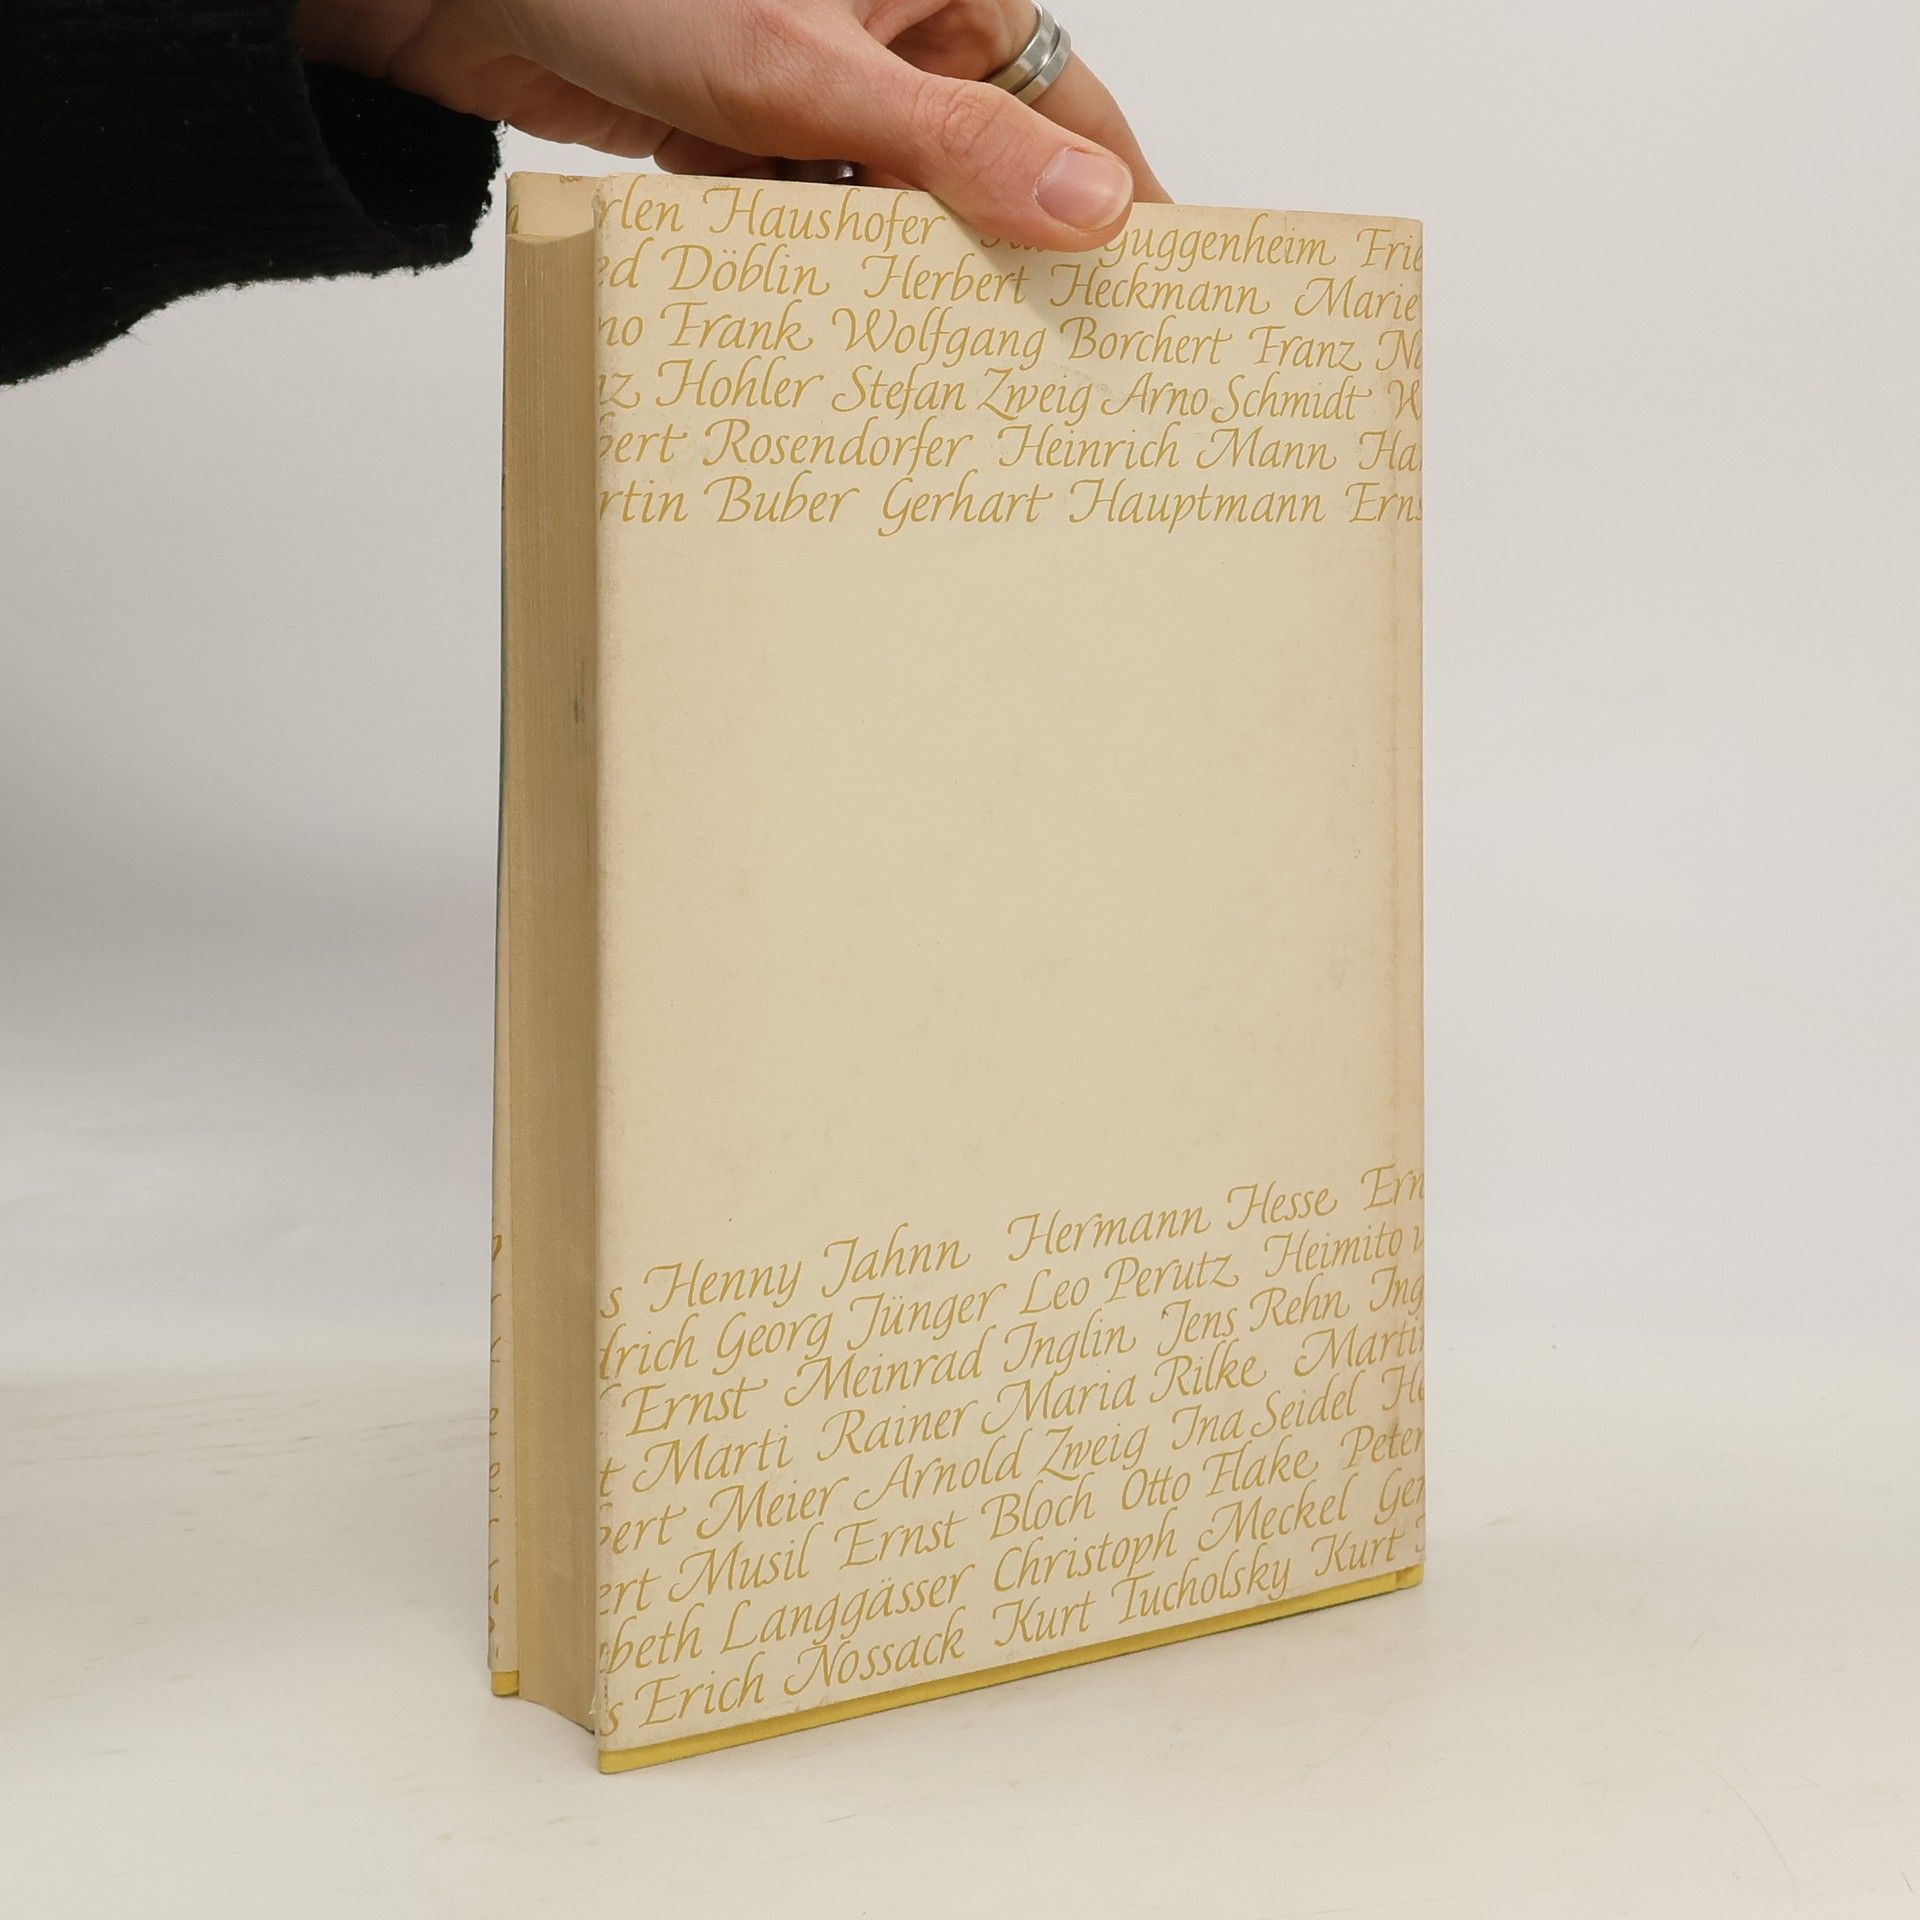 rlen Haushofer Guggenheim Frie
ed Döblin Herbert Heckmann Marie
no Frank Wolfgang Borchert Franz Na
nz Hohler Stefan Zweig Arno Schmidt W
bert Rosendorfer Heinrich Mann Han
rtin Buber Gerhart Hauptmann Erns
s Henny Jahnn Hermann Hesse Ern
drich Georg Jünger Leo Perutz Heimito v
f Ernst Meinrad Inglin Jens Rehn Ing
t Marti Rainer Maria Rilke Martin
bert Meier Arnold Zweig Ina Seidel He
ert Musil Ernst Bloch Otto Flake Peter
abeth Langgässer Christoph Meckel Ger
s Erich Nossack Kurt Tucholsky Kurt